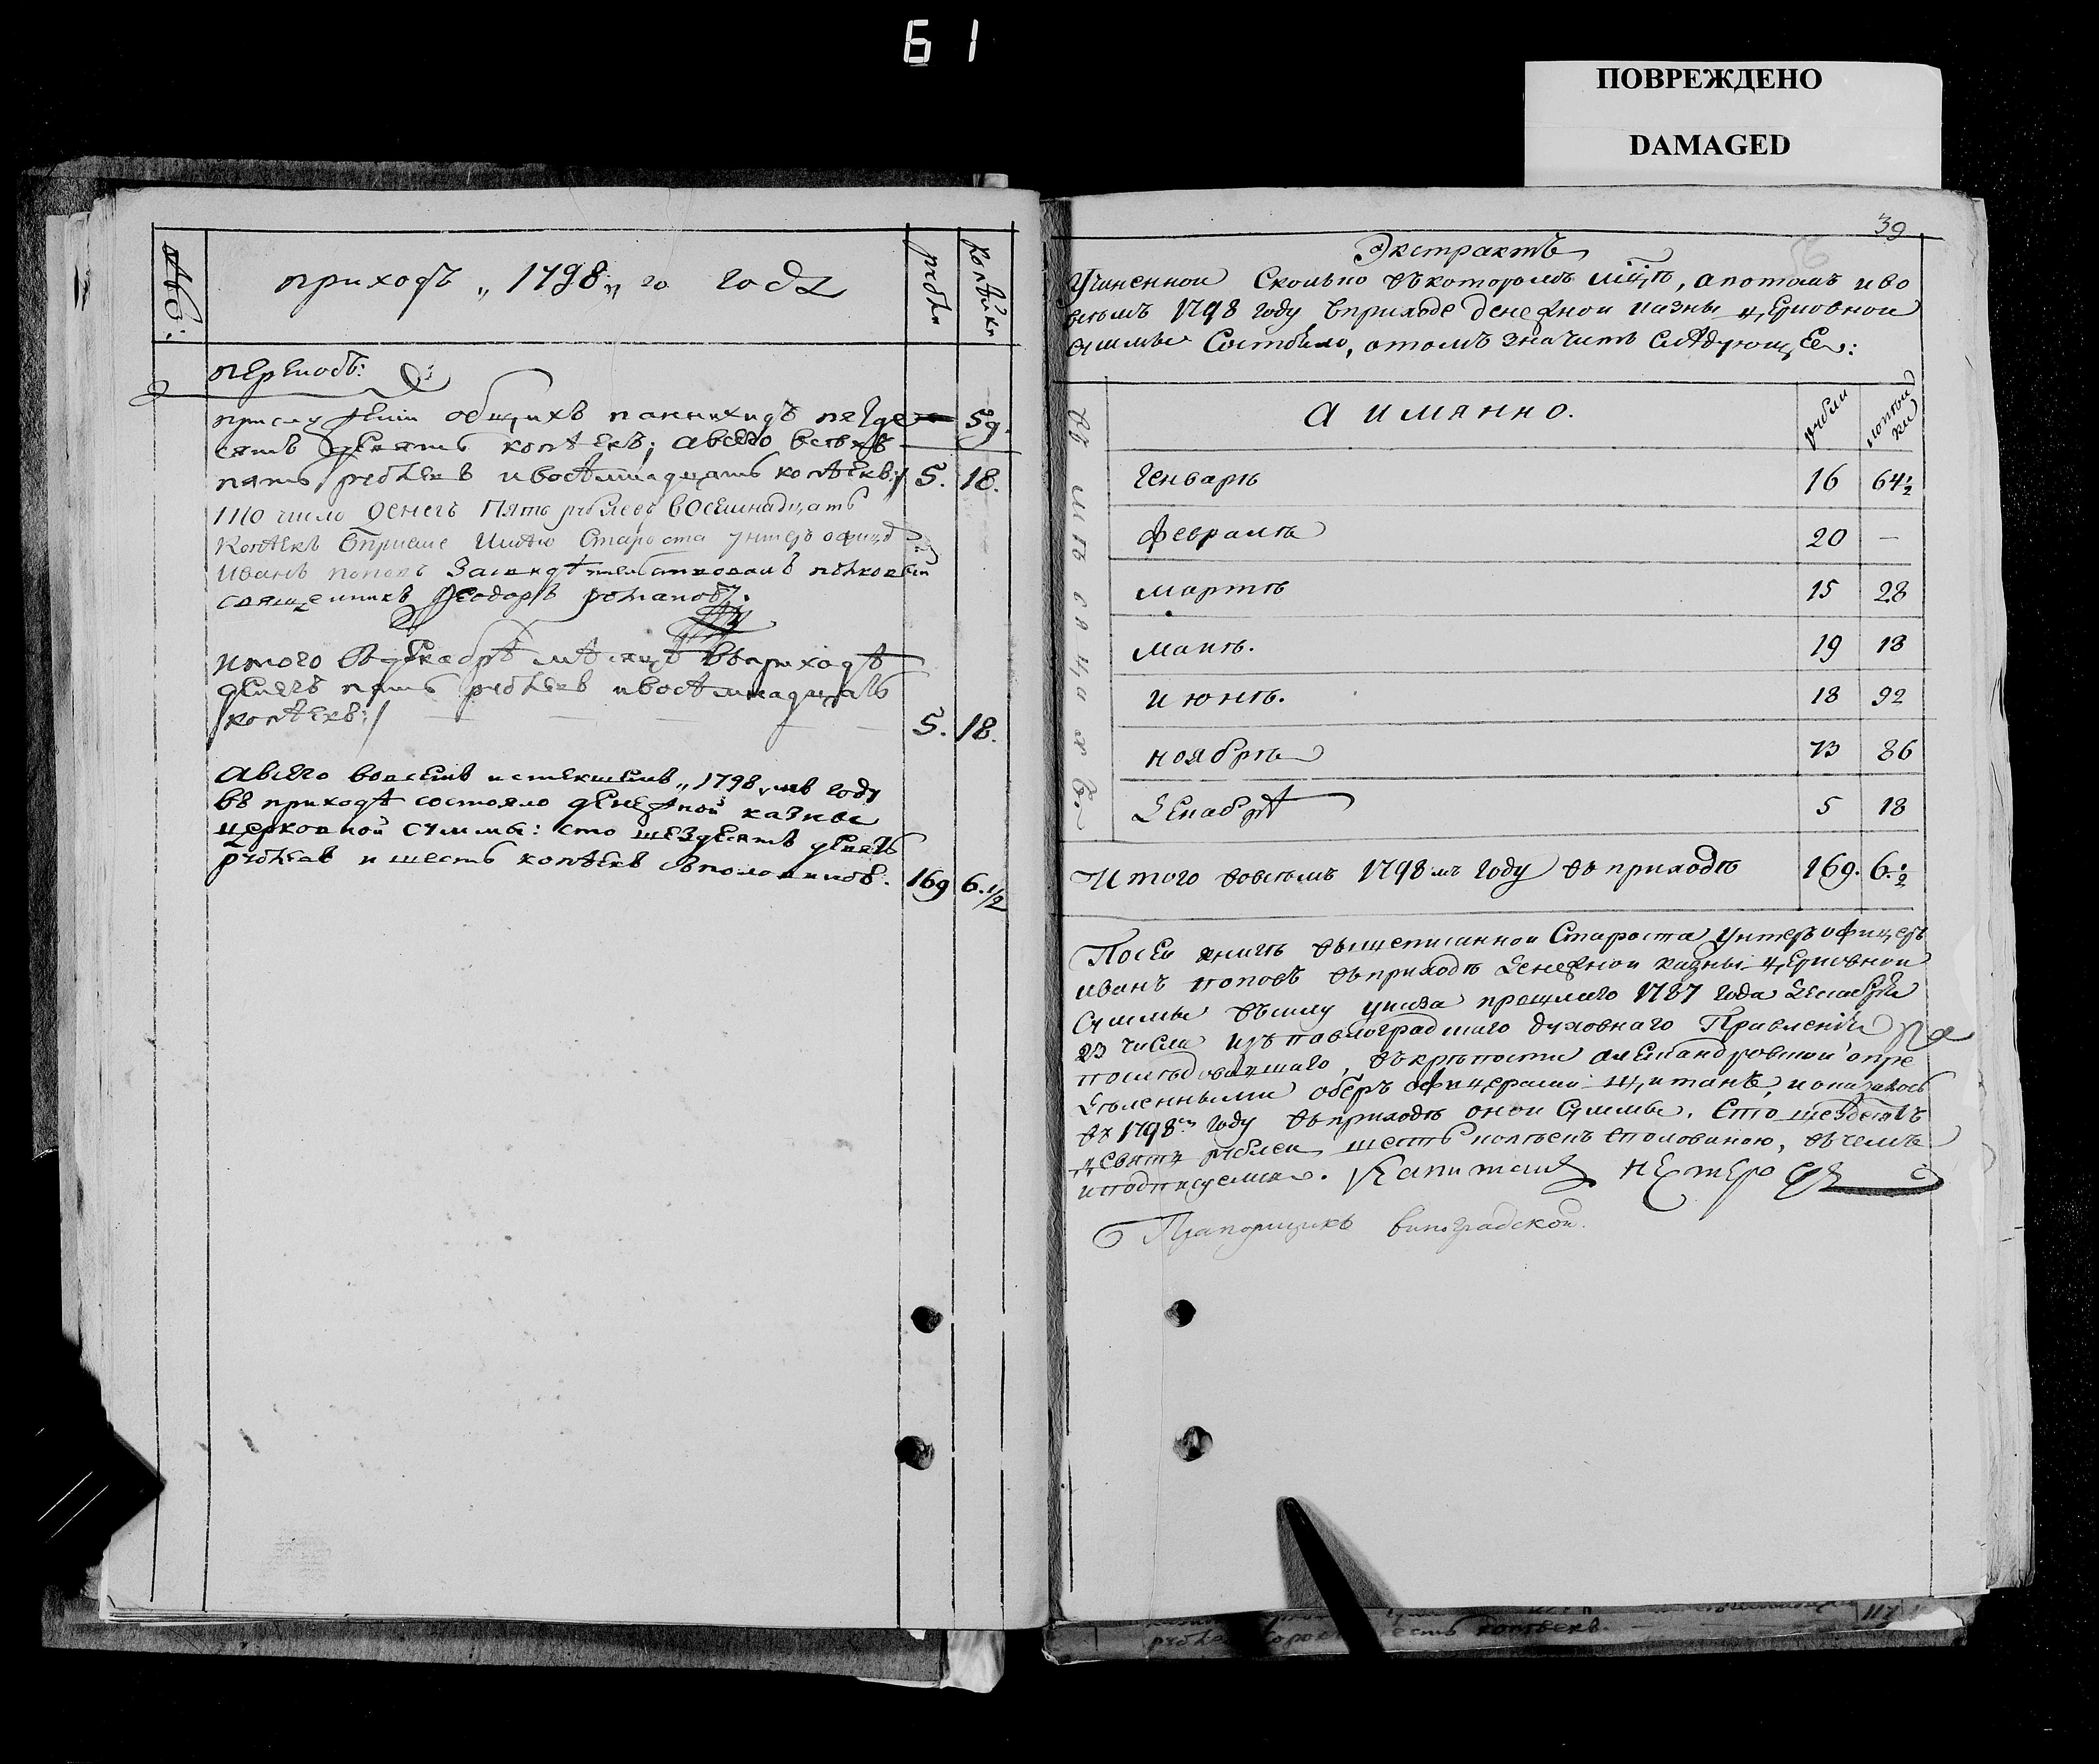 61
ПОВРЕЖДЕНО
DAMAGED
№:
приходъ „1798„ го года
рубли
копѣйки
переносъ:
общихъ паннихидъ пядде 59.
сятъ девять копѣекъ; а всего всѣхъ
пять рублевъ и восѣмнадцать копѣекъ:/ 5. 18.
число денегъ Пять рублевъ восемнадцать
Копѣекъ вприеме Имѣю Староста унтеръ офицеръ
Иванъ поповъ Засвидѣтельствовалъ полковый
священникъ Феодоръ романовъ.
итого въ декабрѣ мѣсяцѣ въ приходѣ
денегъ пять рублевъ и восѣмнадцать
копѣекъ:/ 5. 18.
а всего во всемъ истекшемъ „1798„ мъ году
въ приходѣ состояло денежной казны
церковной суммы: сто шездесятъ девять
рублевъ и шесть копѣекъ съ половиною. 169 6. 1/2
39
Экстрактъ
Учиненной Сколько въ которомъ мцѣ, а потомъ и во
всемъ 1798 году вприходе денежной казны церковной
суммы Состояло, о томъ значитъ слѣдующее:
въ мѣсяцахъ
а имянно.
рубли
копѣйки
Генварѣ 16 64 1/2
февралѣ 20 —
мартѣ 15 28
маиѣ. 19 18
июнѣ. 18 92
ноябрѣ 73 86
декабрѣ 5 18
Итого вовсѣмъ 1798 мъ году въ приходѣ 169. 6. 1/2
По сей книгѣ вышеписанной Староста Унтеръ офицеръ
иванъ поповъ въ приходѣ денежной казны церковной
Суммы въ силу указа прошлаго 1787 года декабря
23 числа изъ павлоградскаго духовнаго Правления
последовавшаго, въ крѣпости александровской опре
дѣленными оберъ офицерами щитанъ, и оказалось
въ 1798 м году въ приходѣ оной Суммы. Сто шездесятъ
девять рублей шесть копѣекъ сполованою, въ чемъ
и подписуемся. Капитанъ
Прапорщикъ виноградской.